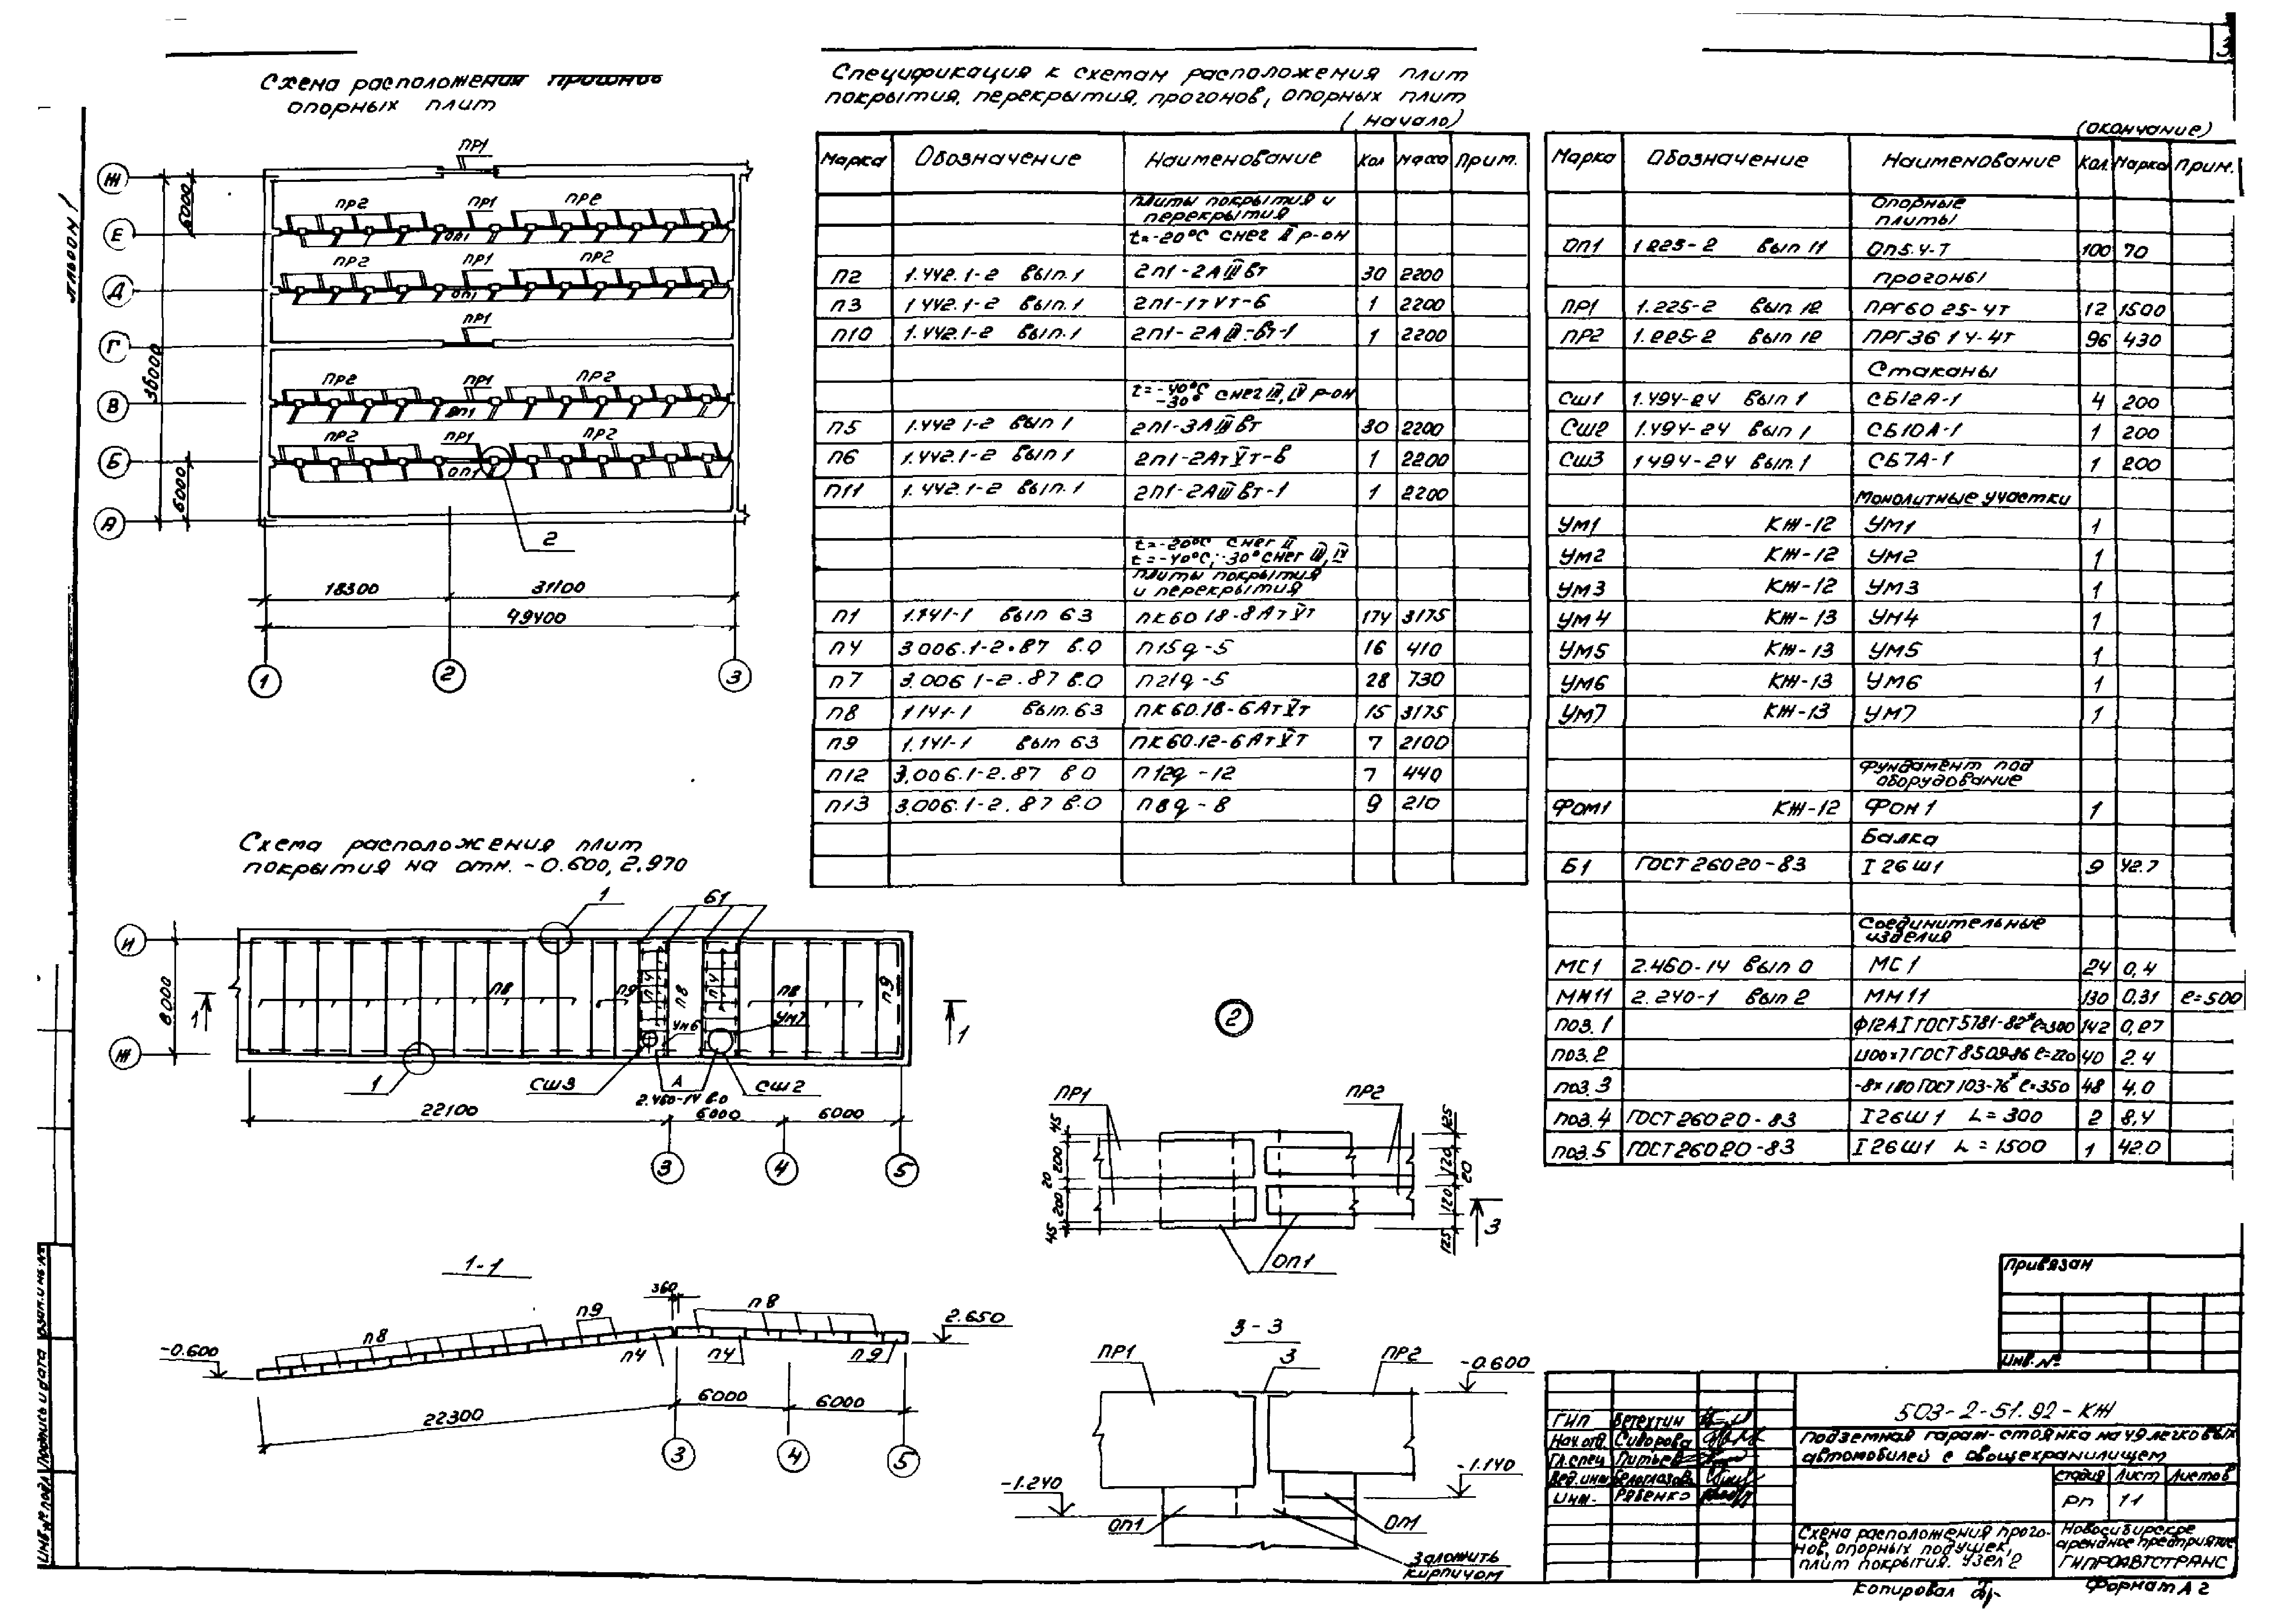 3
Альбом 1
Схема расположения прогонов
опорных плит
ПР1
Ж
Е
Д
Г
В
Б
А
6000
36000
6000
ПР2 ПР1 ПР2
ОП1
ПР2 ПР1 ПР2
ОП1
ПР1
ПР2 ПР1 ПР2
ОП1
ПР2 ПР1 ПР2
ОП1
2
18300 31100
49400
1 2 3
Спецификация к схемам расположения плит
покрытия, перекрытия, прогонов, опорных плит
(начало)
Марка Обозначение Наименование Кол Масса Прим.
Плиты покрытия и
перекрытия
t=-20°C снег II р-он
П2 1.442.1-2 вып.1 2П1-2АIIIвт 30 2200
П3 1.442.1-2 вып.1 2П1-1тVт-6 1 2200
П10 1.442.1-2 вып.1 2П1-2АIII-вт-1 1 2200
t=-40°C
-30° снег III, IV р-он
П5 1.442 1-2 вып 1 2П1-3АIIIвт 30 2200
П6 1.442.1-2 вып 1 2П1-2АтVт-в 1 2200
П11 1.442.1-2 вып.1 2П1-2АIIIвт-1 1 2200
t=-20°C снег II
t=-40°C;-30° снег III, IV
Плиты покрытия
и перекрытия
П1 1.141-1 вып 63 ПК60 18-8АтVт 174 3175
П4 3 006.1-2.87 в.0 П15g-5 16 410
П7 3.006 1-2.87 в.0 П21g-5 28 730
П8 1 141-1 вып.63 ПК60.18-6АтVт 15 3175
П9 1.141-1 вып 63 ПК60.12-6АтVт 7 2100
П12 3.006.1-2.87 в 0 П12g-12 7 440
П13 3.006.1-2.87 в.0 П8g-8 9 210
(окончание)
Марка Обозначение Наименование Кол. Марка Прим.
Опорные
плиты
ОП1 1.225-2 вып 11 ОП5.4-Т 100 70
Прогоны
ПР1 1.225-2 вып 12 ПРГ60 25-4т 12 1500
ПР2 1.225-2 вып 12 ПРГ36 1 4-4т 96 430
Стаканы
СШ1 1.494-24 вып 1 СБ12А-1 4 200
СШ2 1.494-24 вып 1 СБ10А-1 1 200
СШ3 1494-24 вып.1 СБ7А-1 1 200
Монолитные участки
УМ1 КЖ-12 УМ1 1
УМ2 КЖ-12 УМ2 1
УМ3 КЖ-12 УМ3 1
УМ4 КЖ-13 УМ4 1
УМ5 КЖ-13 УМ5 1
УМ6 КЖ-13 УМ6 1
УМ7 КЖ-13 УМ7 1
Фундамент под
оборудование
ФОМ1 КЖ-12 ФОМ 1 1
Балка
Б1 ГОСТ 26020-83 I 26Ш1 9 42.7
Соединительные
изделия
МС1 2.460-14 вып 0 МС1 24 0,4
МН11 2.240-1 вып 2 МН11 130 0,31 ℓ=500
поз.1 ф12АI ГОСТ 5781-82* ℓ=300 142 0,27
поз.2 L100×7 ГОСТ 8509-86 ℓ=220 40 2.4
поз.3 -8×180 ГОСТ 103-76* ℓ=350 48 4,0
поз.4 ГОСТ 26020-83 I26Ш1 L=300 2 8,4
поз.5 ГОСТ 26020-83 I26Ш1 L=1500 1 42.0
Схема расположения плит
покрытия на отм. -0.600, 2.970
1 Б1
И
Ж
6000
1 П8 П9 П4 П8 П4 П8 П9 1
УМ6 УМ7
1 СШ3 А СШ2
2.460-14 в.0
22100 6000 6000
3 4 5
1-1
360
-0.600 П8 П9 П8 2.650
П4 П4 П9
22300 6000 6000
3 4 5
2
ПР1 ПР2
45 200 20 200 45
125 120 20 120 125
3
ОП1
3-3
3
ПР1 ПР2 -0.600
-1.240 -1.140
ОП1 ОП1
Заложить
кирпичом
Привязан
Инв.№
503-2-51.92-КЖ
Подземная гараж-стоянка на 49 легковых
автомобилей с овощехранилищем
ГИП Ветехтин
Нач.отд. Сидорова
Гл.спец
Вед.инж
Инж. Рябенко
стадия Лист Листов
РП 11
Схема расположения прого-
нов, опорных подушек,
плит покрытия. Узел 2
Новосибирское
арендное предприятие
ГИПРОАВТОТРАНС
Копировал Формат А2
Инв.№ подл. Подпись и дата Взам.инв.№